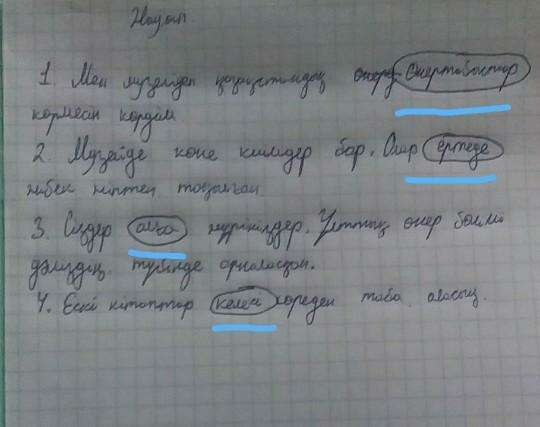 Жауап
1 Мен музейден қазақстандық өнер өнертабыстар
көрмесін көрдім
2. Музейде көне киімдер бар. Олар ертеде
жібек жіптен тоқылған
3. Сіздер алға жүріңіздер. Ұлттық өнер бөлімі
дәліздің түбінде орналасқан.
4. Ескі кітаптар келесі бөлмеден таба аласың.